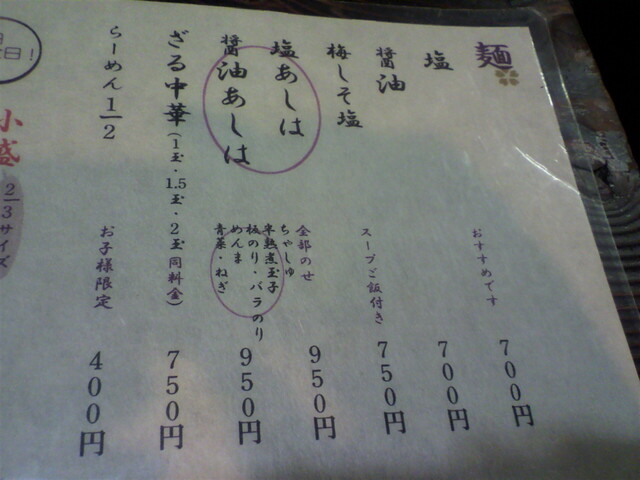 麺
塩
おすすめです
700円
醤油
700円
梅しそ塩
スープご飯付き
750円
塩あしは
950円
醤油あしは
全部のせ
ちゃしゅ
半熟煮玉子
板のり・バラのり
めんま
青菜・ねぎ
950円
ざる中華(1玉・1.5玉・2玉 同料金)
750円
らーめん1/2
お子様限定
400円
小盛
2/3サイズ